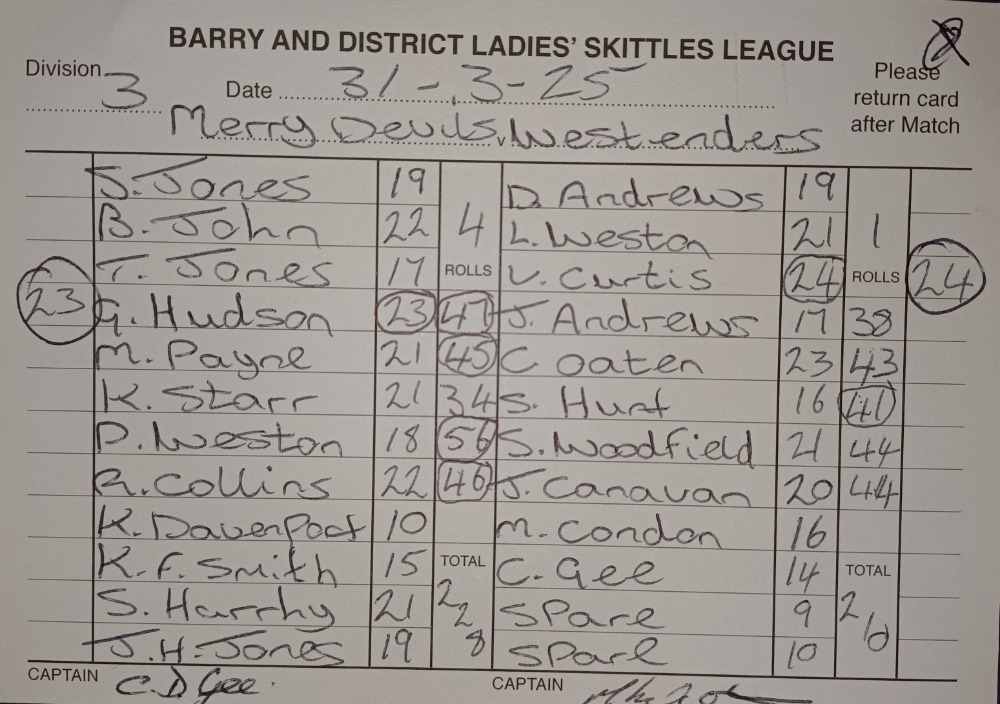 BARRY AND DISTRICT LADIES' SKITTLES LEAGUE
Please return card after Match
Division 3 Date 31-3-25
Merry Devils v Westenders
S. Jones 19 4 D. Andrews 19 1
B. John 22 L. Weston 21
T. Jones 17 ROLLS V. Curtis 24 ROLLS 24
23 G. Hudson 23 47 J. Andrews 17 38
M. Payne 21 45 C Oaten 23 43
K. Starr 21 34 S. Hunt 16 41
P. Weston 18 56 S. Woodfield 21 44
R. Collins 22 46 J. Canavan 20 44
K. Davenpoat 10 M. Condon 16
K. F. Smith 15 TOTAL C. Gee 14 TOTAL
S. Harrhy 21 228 SPare 9 210
J. H. Jones 19 SPare 10
CAPTAIN C. D Gee. CAPTAIN